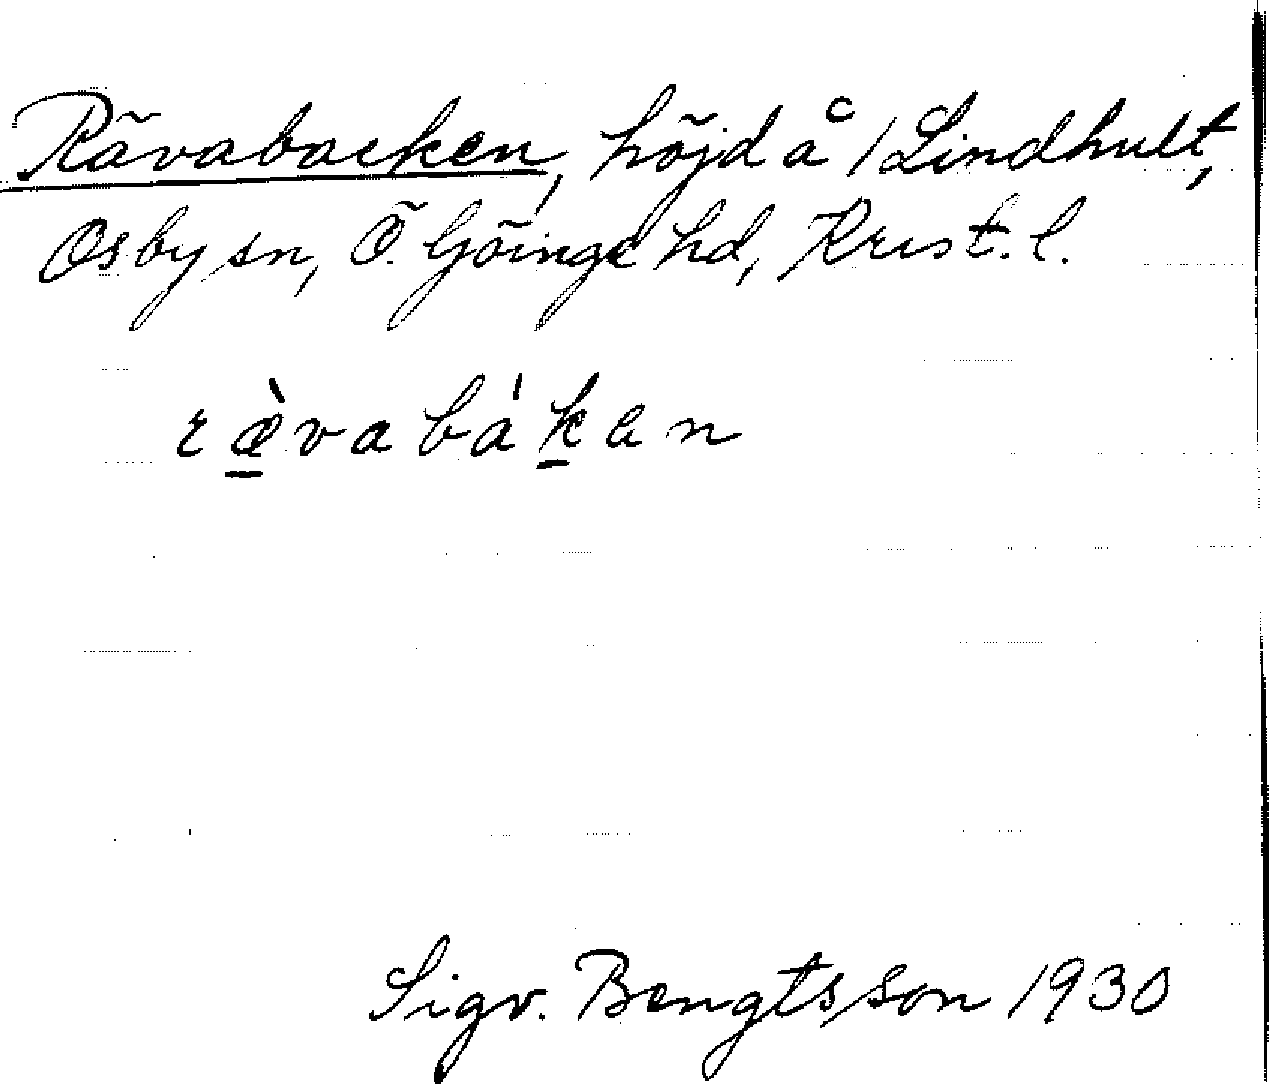 Rävabacken, höjd å /Lindhult,
Osby sn, Ö. Göinge hd, Krist. l.
ræ̱̀vabá'ḵan
Sigv. Bengtsson 1930